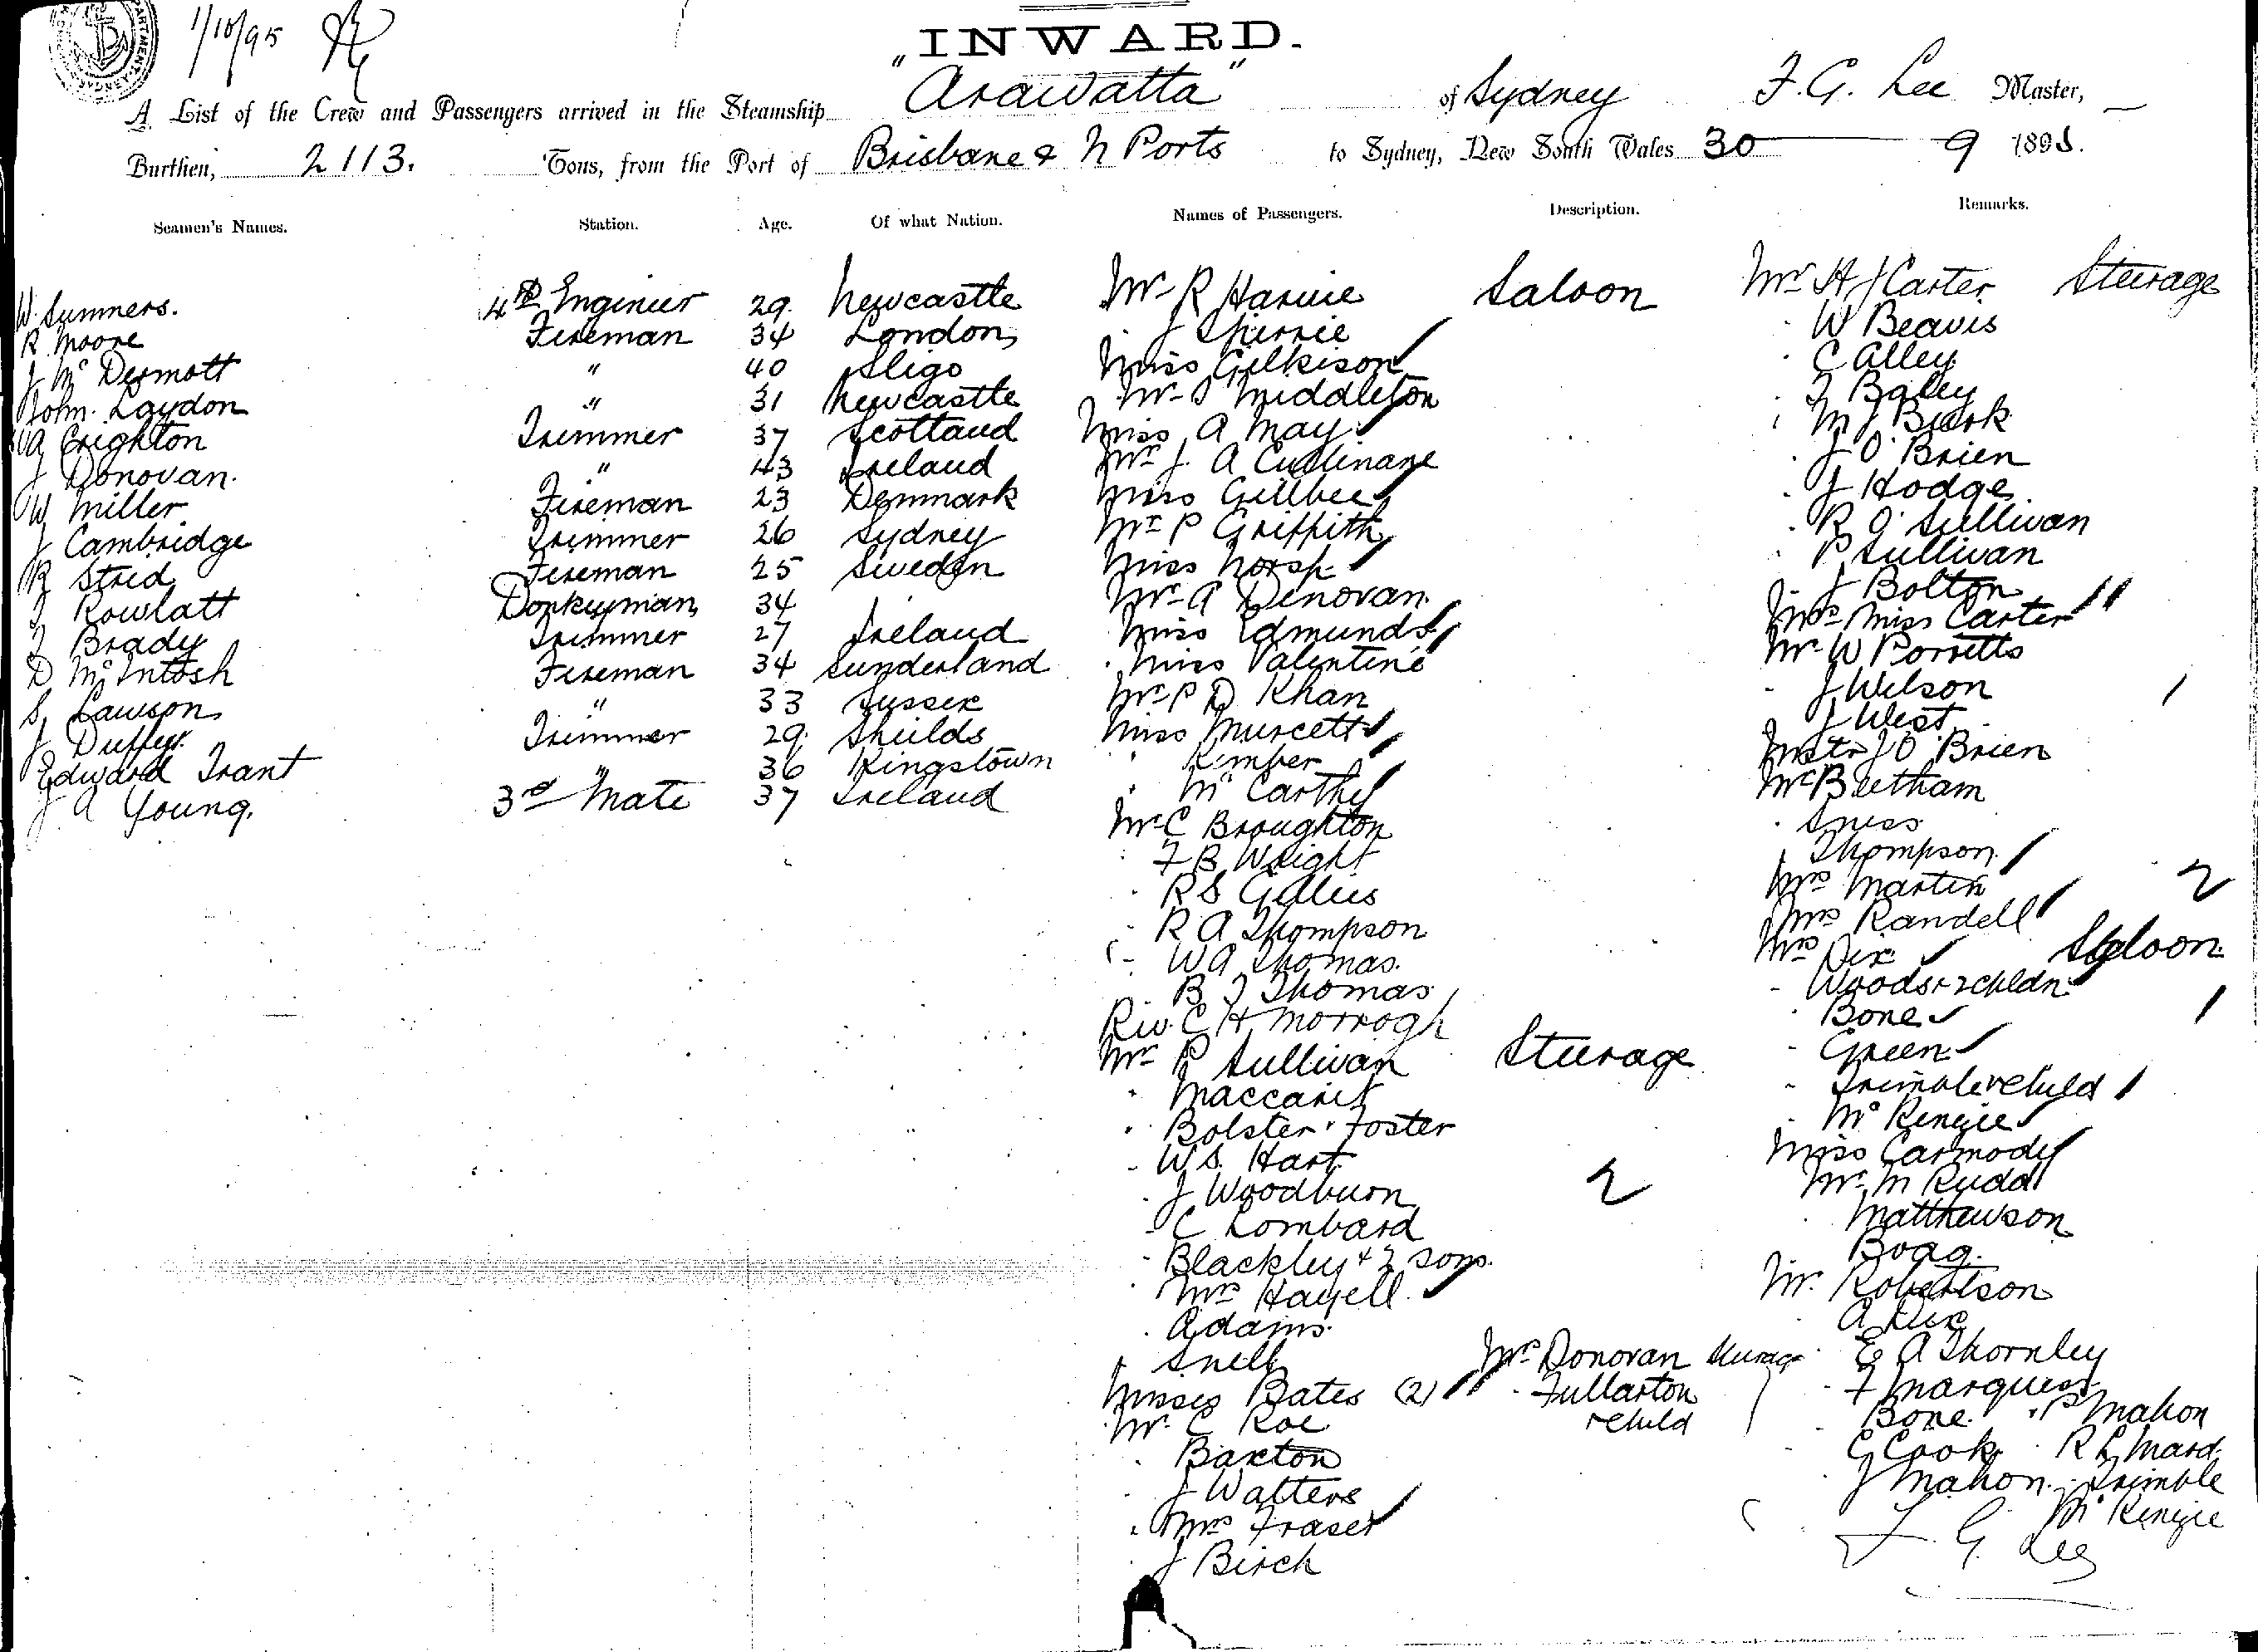 1/10/95
INWARD.
A List of the Crew and Passengers arrived in the Steamship "Arawatta" of Sydney F. G. Lee Master,
Burthen, 2113. Tons, from the Port of Brisbane & N Ports to Sydney, New South Wales 30 9 1895.
Seamen's Names. Station. Age. Of what Nation. Names of Passengers. Description. Remarks.
W. Summers. 4th Engineer 29. Newcastle
R Moore Fireman 34 London
J McDermott " 40 Sligo
John Laydon " 31 Newcastle
WA Crighton Trimmer 37 Scotland
J Donovan. " 43 Ireland
W Miller Fireman 23 Denmark
J Cambridge Trimmer 26 Sydney
R Strid Fireman 25 Sweden
J Rowlatt Donkeyman 34
J Brady Trimmer 27 Ireland
D McIntosh Fireman 34 Sunderland
S. Lawson " 33 Sussex
J Duffy. Trimmer 29. Shields
Edward Trant " 36 Kingstown
J. A Young. 3rd Mate 37 Ireland
Mr R Harvie Saloon
J Sherrie
Miss Gilkison
Mr J Middleton
Miss A May
Mr J. A Cullinane
Miss Gillbee
Mr P Griffith
Miss Norsh
Mr A Denovan
Miss Edmunds
Miss Valentine
Mr P D Khan
Miss Murcett
" Kimber
" McCarthy
Mr C Broughton
F B Wright
R S Gillies
R A Thompson
W A Thomas.
B J Thomas
Rev. C H Morrogh
Mr P Sullivan Steerage
Maccarit
Bolster " Foster
W S. Hart
J Woodburn 2
C Lombard
Blackley & 2 sons.
Mrs Hayell.
Adams.
Snell
Misses Bates (2)
Mr. C Roe
Baxton
J Walters
Mrs Fraser
J Birch
Mrs Donovan Steerage
Fullarton
& child
Mr H J Carter Steerage
W Beavis
C Alley
J Baley
M J Burk
J O'Brien
J Hodge
R O'Sullivan
P Sullivan
J Bolton
Mrs Miss Carter
Mr W Porritts
J Wilson
J West
Mstr J O'Brien
Mr Beetham
Sness
Thompson.
Mrs Martin 2
Mrs Randell
Mrs Dix Saloon
Woods & 2 chldn
Bone
Green
Trimble & child
McKenzie
Miss Carmody
Mr. M Rudd
Matthewson
Boag.
Mr. Robertson
A Dix
E A Thornley
F Marquess
Bone. " P Mahon
G Cook " R L Mard
J Mahon. Trimble
McKenzie
F. G. Lee